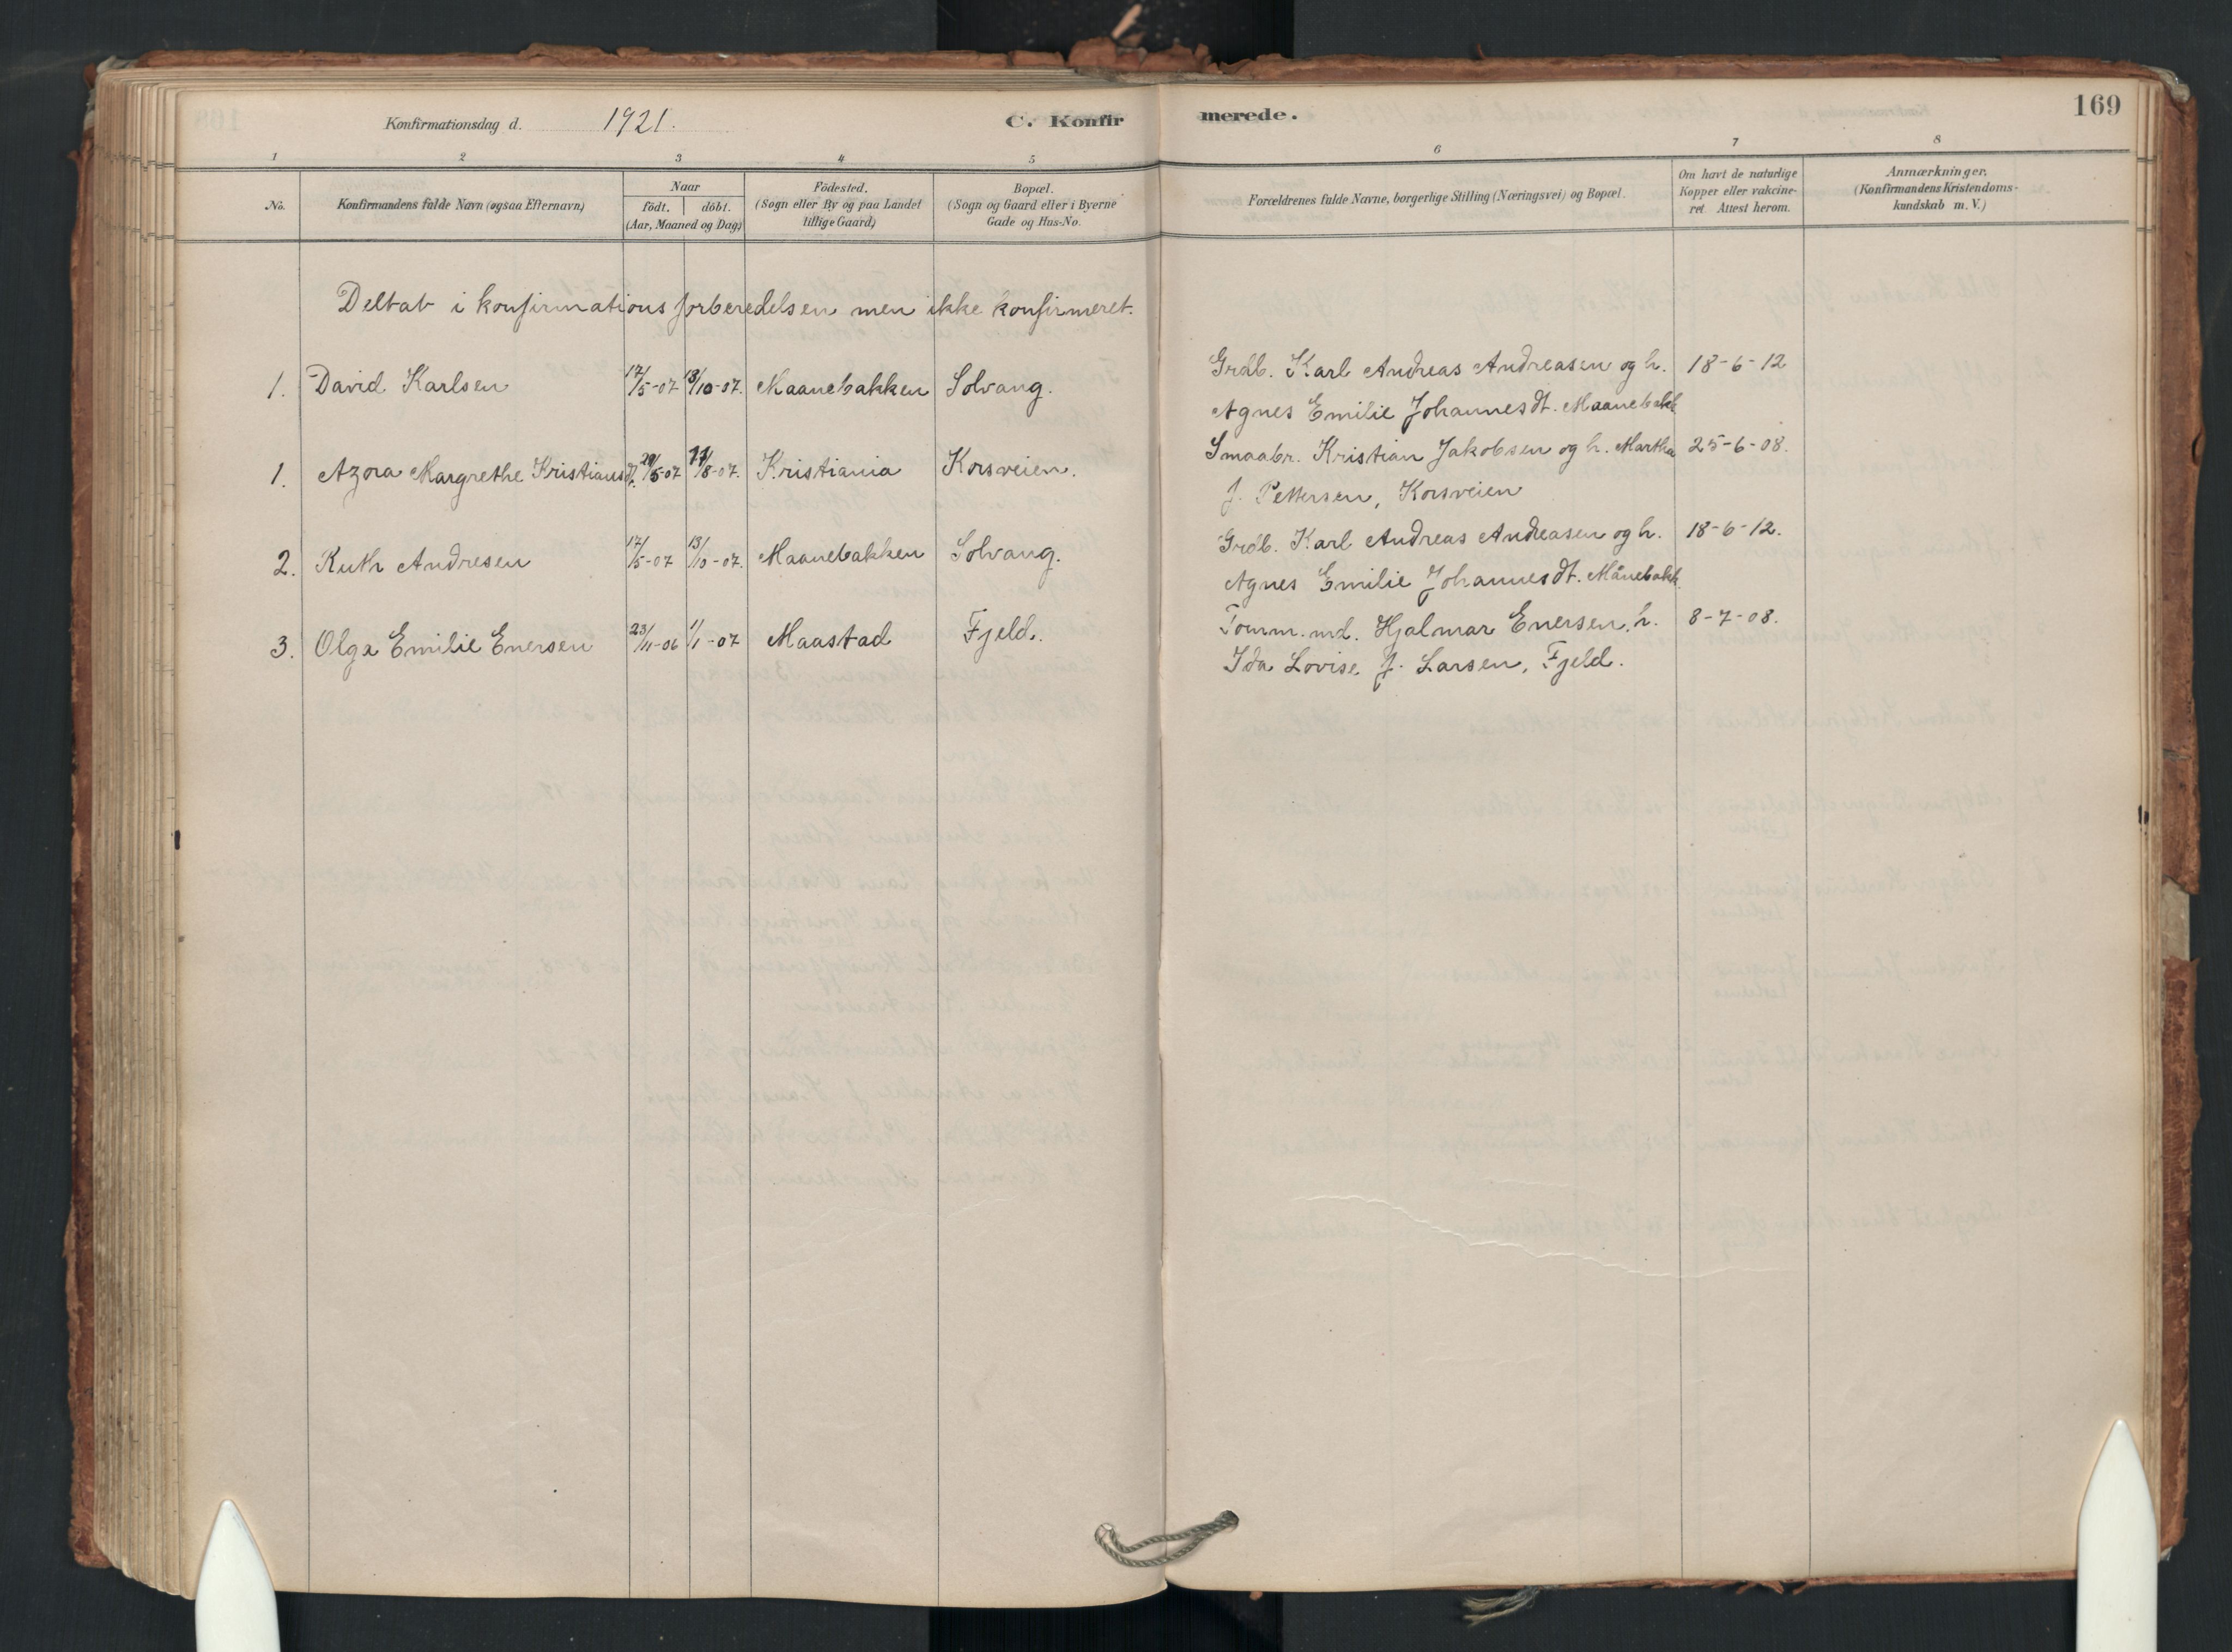 Konfirmationsdag d. 1921. C. Konfirmerede. 169
1 2 3 4 5 6 7 8
No. Konfirmandens fulde Navn (ogsaa Efternavn) Naar födt. döbt. (Aar, Maaned og Dag) Födested. (Sogn eller By og paa Landet tillige Gaard) Bopæl. (Sogn og Gaard eller i Byerne Gade og Hus-No. Forældrenes fulde Navne, borgerlige Stilling (Næringsvei) og Bopæl. Om havt de naturlige Kopper eller vakcineret. Attest herom. Anmærkninger. (Konfirmandens Kristendomskundskab m. V.)
Deltat i konfirmations forberedelsen men ikke konfirmeret.
1. David Karlsen 17/5-07 13/10-07. Maanebakken Solvang. Grdb. Karl Andreas Andreasen og h. 18-6-12
Agnes Emilie Johannesdt. Maanebakk
1. Azora Margrethe Kristiansdt. /5-07 /8-07. Kristiania Korsveien. Smaabr. Kristian Jakobsen og h. Martha 25-6-08.
f. Pettersen, Korsveien
2. Ruth Andresen 17/5-07 13/10-07. Maanebakken Solvang. Grdb. Karl Andreas Andreasen og h. 18-6-12.
Agnes Emilie Johannesdt. Månebakk
3. Olga Emilie Enersen 23/11-06 1/1-07 Maastad Fjeld. Tømm.md. Hjalmar Enersen, h. 8-7-08.
Ida Lovise f. Larsen, Fjeld.